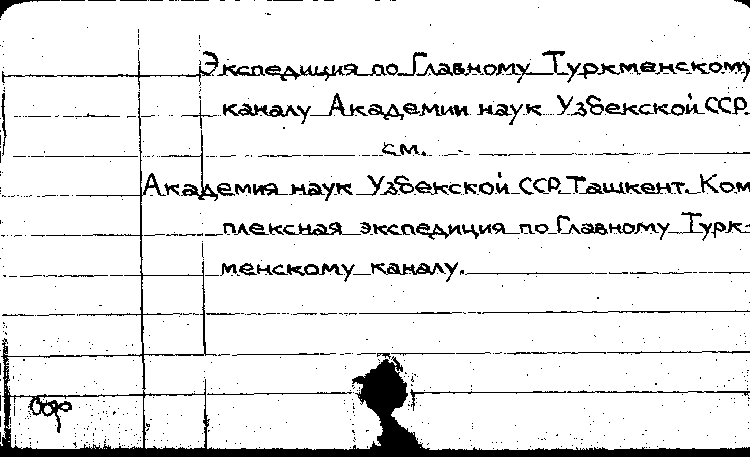 Экспедиция по Главному Туркменскому
каналу Академии наук Узбекской ССР.
см.
Академия наук Узбекской ССР. Ташкент. Ком
плексная экспедиция по Главному Турк-
менскому каналу.